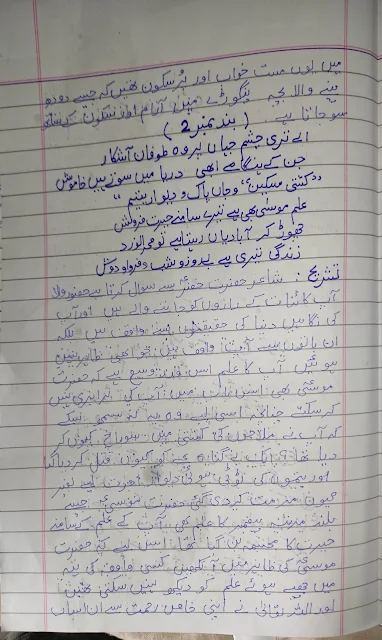 میں یوں مست خواب اور پُر سکون تھیں کہ جیسے دودھ
پینے والا بچہ پنگوڑے میں آرام اور سکون کے ساتھ
سو جاتا ہے
(بند نمبر 2)
اے تری چشم جہاں بیں پر وہ طوفاں آشکار
جن کے ہنگامے ابھی دریا میں سوتے ہیں خاموش
"کشتی مسکین" و جان پاک و دیوار یتیم"
علم موسیٰ بھی ہے تیرے سامنے حیرت فروش
چھوڑ کر آبادیاں رہتا ہے تو صحرا نورد
زندگی تیری ہے بے روز و شب و فردا و دوش
تشریح: شاعر حضرت خضر سے سوال کرتا ہے حضور والا
آپ کائنات کے رازوں کو جاننے والے ہیں اور آپ
کی نگاہیں دنیا کی حقیقتوں سے واقف ہیں بلکہ
ان باتوں سے آپ واقف ہیں جو ابھی ظاہر نہیں
ہوئیں آپ کا علم اس قدر وسیع ہے کہ حضرت
موسیٰ بھی اس بارے میں آپ کی برابری نہیں
کر سکتے چنانچہ اسی لیے وہ یہ نہ سمجھ سکے
کہ آپ نے ملاحوں کی کشتی میں سوراخ کیوں کر
دیا تھا؟ ایک بے گناہ بچے کو کیوں قتل کر دیا گیا
اور یتیموں کی ٹوٹی ہوئی دیوار اجرت لیے بغیر
کیوں مرمت کر دی گئی حضرت موسیٰ جیسے
بلند مرتبہ پیغمبر کا علم بھی آپ کے علم کے سامنے
حیرت کا مجسمہ بن گیا تھا اس لیے کہ حضرت
موسیٰ کی ظاہر میں آنکھیں کسی واقعہ کی تہہ
میں چھپے ہوئے علم کو دیکھ نہیں سکتی تھیں
اور اللہ تعالیٰ نے اپنی خاص رحمت سے ان اسباب